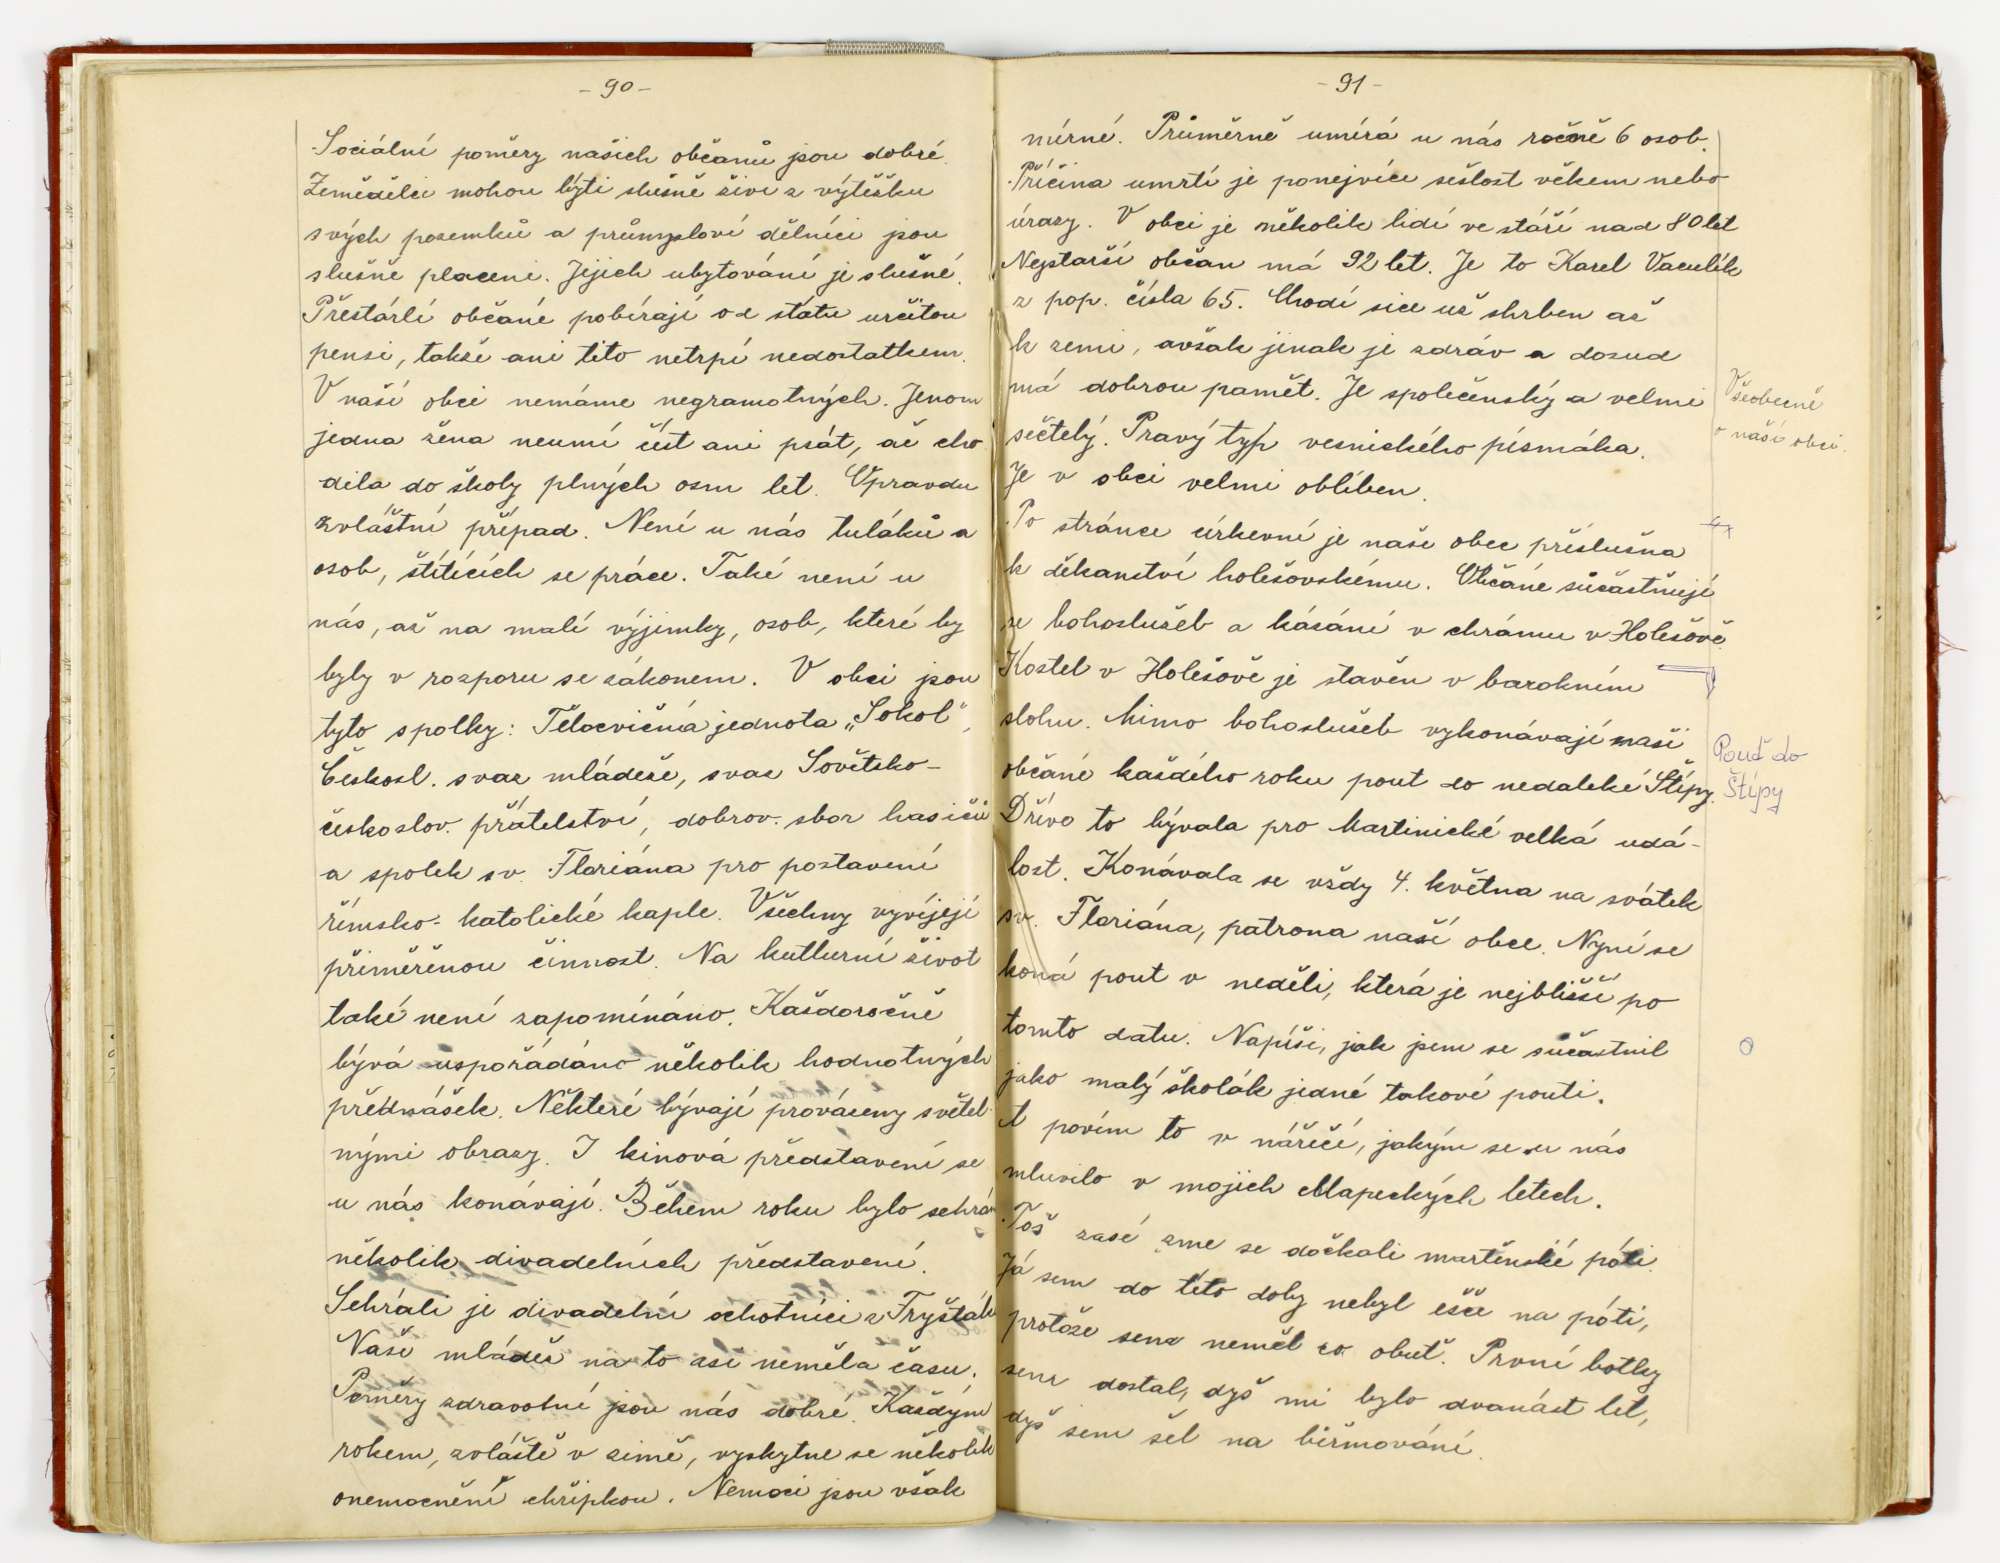 - 90 -
Sociální poměry našich občanů jsou dobré.
Zemědělci mohou býti slušně živi z výtěžku
svých pozemků a průmysloví dělníci jsou
slušně placeni. Jejich ubytování je slušné.
Přestárlí občané pobírají od státu určitou
pensi, takže ani tito netrpí nedostatkem.
V naší obci nemáme negramotných. Jenom
jedna žena neumí číst ani psát, ač cho
dila do školy plných osm let. Opravdu
zvláštní případ. Není u nás tuláků a
osob, štítících se práce. Také není u
nás, až na malé výjimky, osob, které by
byly v rozporu se zákonem. V obci jsou
tyto spolky: Tělocvičná jednota „Sokol",
Českosl. svaz mládeže, svaz Sovětsko-
českoslov. přátelství, dobrov. sbor hasičů
a spolek sv. Floriána pro postavení
římsko-katolické kaple. Všechny vyvíjejí
přiměřenou činnost. Na kulturní život
také není zapomínáno. Každoročně
bývá uspořádáno několik hodnotných
přednášek. Některé bývají provázeny světel-
nými obrazy. I kinová představení se
u nás konávají. Během roku bylo sehrá
několik divadelních představení.
Sehráli je divadelní ochotníci z Fryšták
Naše mládež na to asi neměla času.
Poměry zdravotní jsou nás dobré. Každým
rokem, zvláště v zimě, vyskytne se několik
onemocnění chřipkou. Nemoci jsou však
- 91 -
mírné. Průměrně umírá u nás ročně 6 osob.
Příčina umrtí je ponejvíce sešlost věkem nebo
úrazy. V obci je několik lidí ve stáří nad 80 let
Nejstarší občan má 92 let. Je to Karel Vaculík
z pop. čísla 65. Chodí sice už shrben až
k zemi, avšak jinak je zdráv a dosud
má dobrou pamět. Je společenský a velmi
sečtelý. Pravý typ vesnického písmáka.
Je v obci velmi oblíben.
Všeobecně
o naší obci.
Po stránce církevní je naše obec příslušna
k děkanství holešovskému. Občané súčastňují
se bohoslužeb a kázání v chrámu v Holešově
Kostel v Holešově je stavěn v barokním
slohu. Mimo bohoslužeb vykonávají naši
občané každého roku pout do nedaleké Štípy.
Pouť do
Štípy
Dřívo to bývala pro Martinické velká udá-
lost. Konávala se vždy 4. května na svátek
sv. Floriána, patrona naší obce. Nyní se
koná pout v neděli, která je nejbližší po
tomto datu. Napíši, jak jsem se súčastnil
jako malý školák jedné takové pouti.
A povím to v nářečí, jakým se u nás
mluvilo v mojich chlapeckých letech.
Tož zasé zme se dočkali martěnské póti.
Já sem do této doby nebyl ešče na póti,
protože sem neměl co obuť. První botky
sem dostal, dyž mi bylo dvanást let,
dyž sem šel na biřmování.